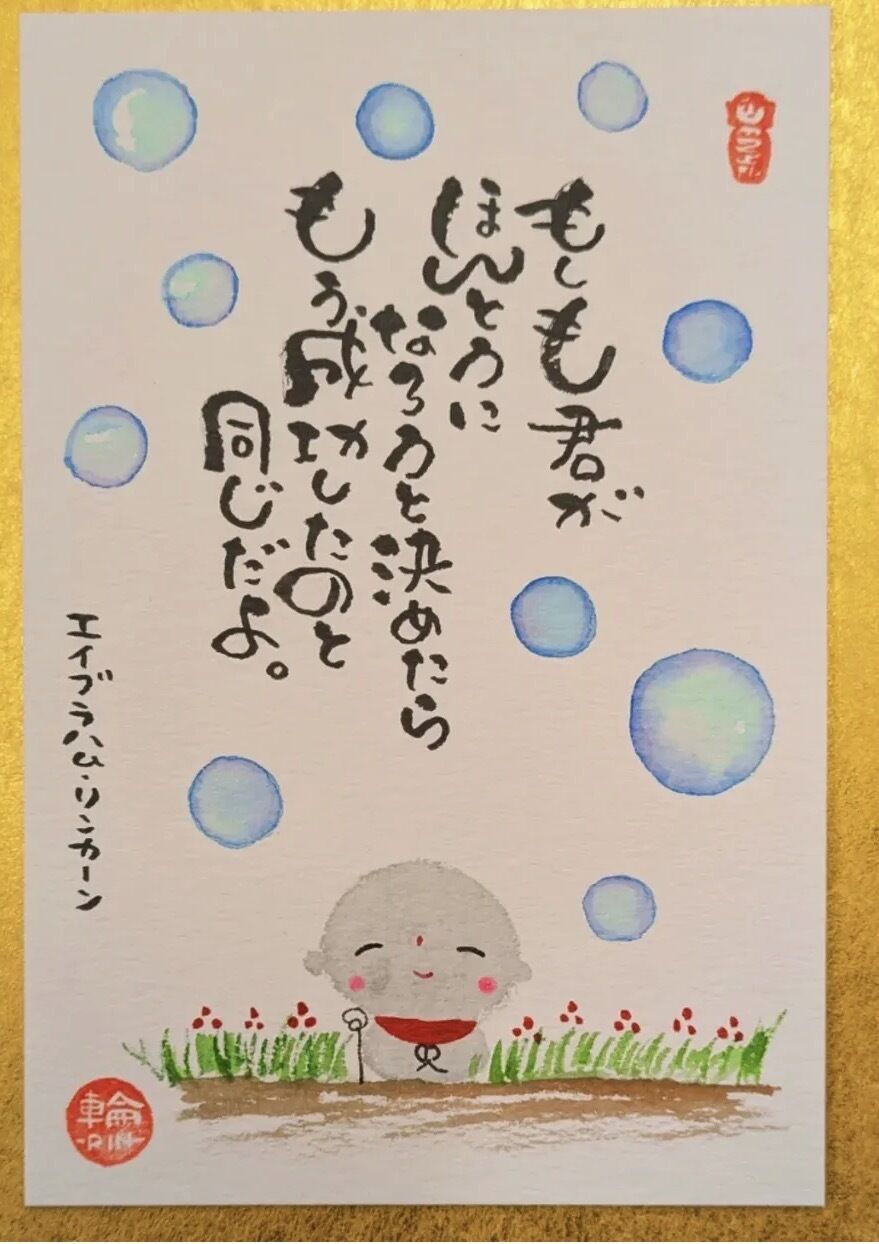 もしも君が
ほんとうに
なろうと決めたら
もう、成功したのと
同じだよ。
エイブラハム・リンカーン
輪
-RIN-